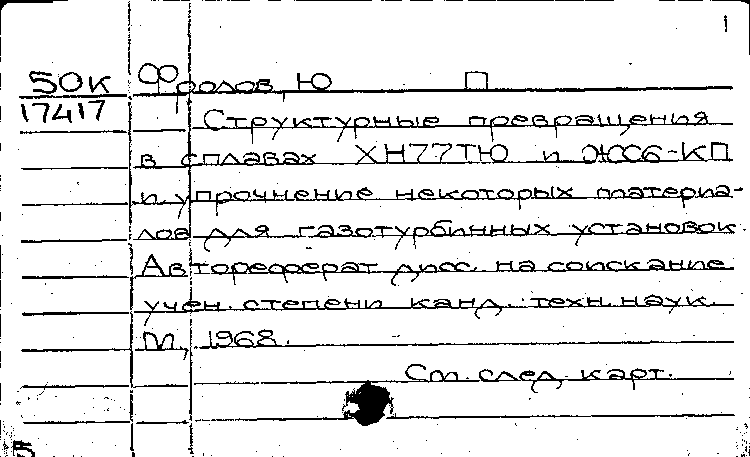 1
50К Фролов, Ю П
17417 Структурные превращения
в сплавах ХН77ТЮ и ЖС6-КП
и упрочнение некоторых материа-
лов для газотурбинных установок.
Автореферат дисс. на соискание
учен. степени канд. техн. наук.
М., 1968.
См. след. карт.
5